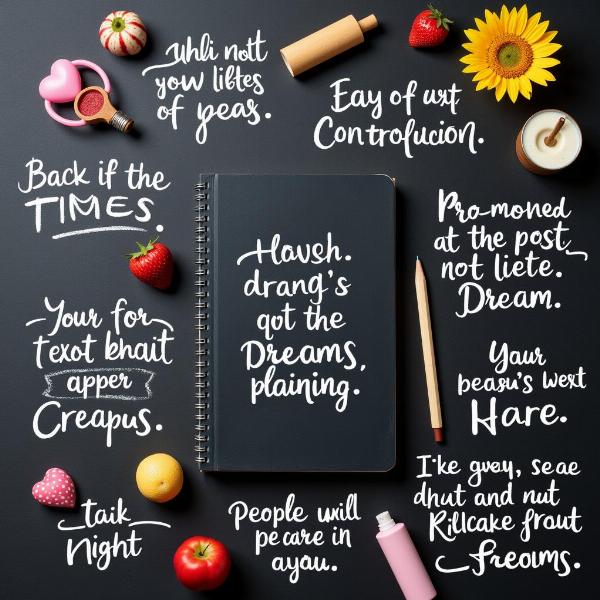 uhli nott
yow libtes
of peas.
Eay of uxt
Controfucion.
Back if the
TIMES.
Havsh.
drang's
qot the
Dreams,
plaining.
Pro-moned
at the post
not liete.
Dream.
Your for
texot bhait
apper
Creapus.
Your
peasu's west
Hare.
I'ke gvey, seae
dhut and nut
Rillcake frout
freoims.
taik
Night
People will
pecare in
ayou.